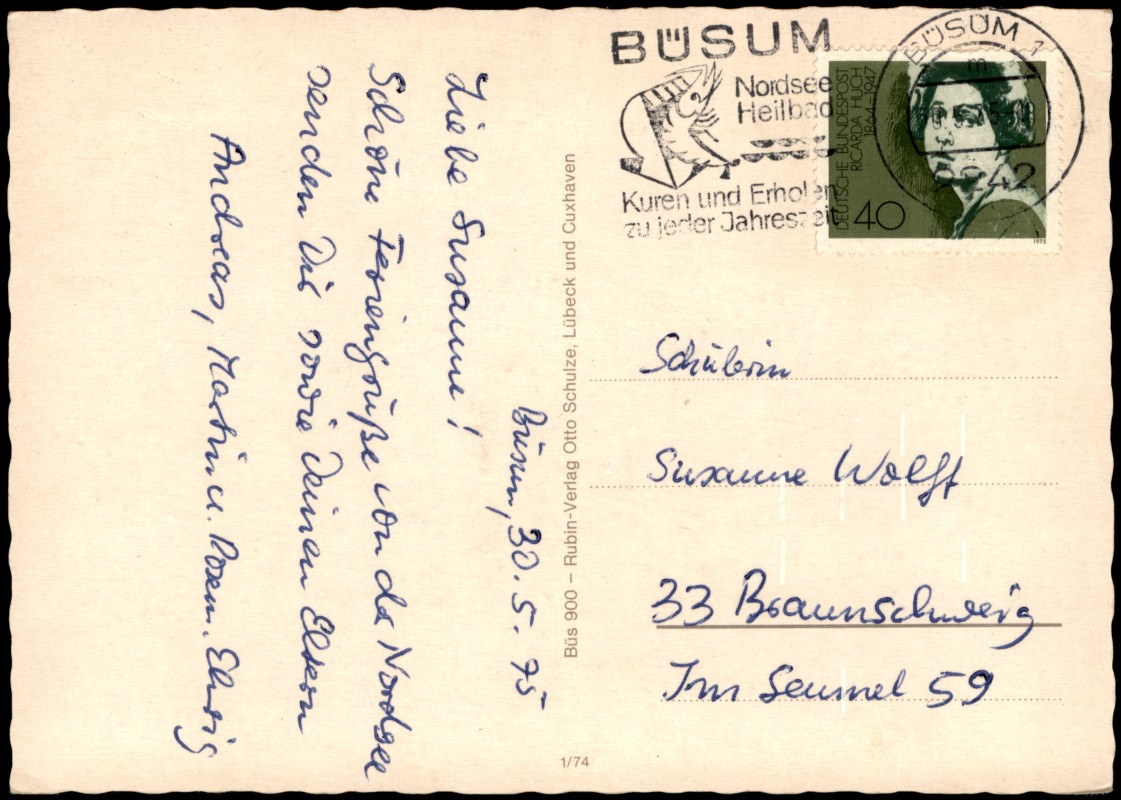 Büsum, 30. 5. 75
Liebe Susanne!
Schöne Feriengrüße von der Nordsee
senden Dir sowie Deinen Eltern
Andreas, Martin u. Rosem. Elwig
Büs 900 – Rubin-Verlag Otto Schulze, Lübeck und Cuxhaven
1/74
BÜSUM
Nordsee
Heilbad
Kuren und Erholen
zu jeder Jahreszeit
BÜSUM 1
m
2242
DEUTSCHE BUNDESPOST
RICARDA HUCH
1864–1947
40
1975
Schülerin
Susanne Wolff
33 Braunschweig
Im Seumel 59